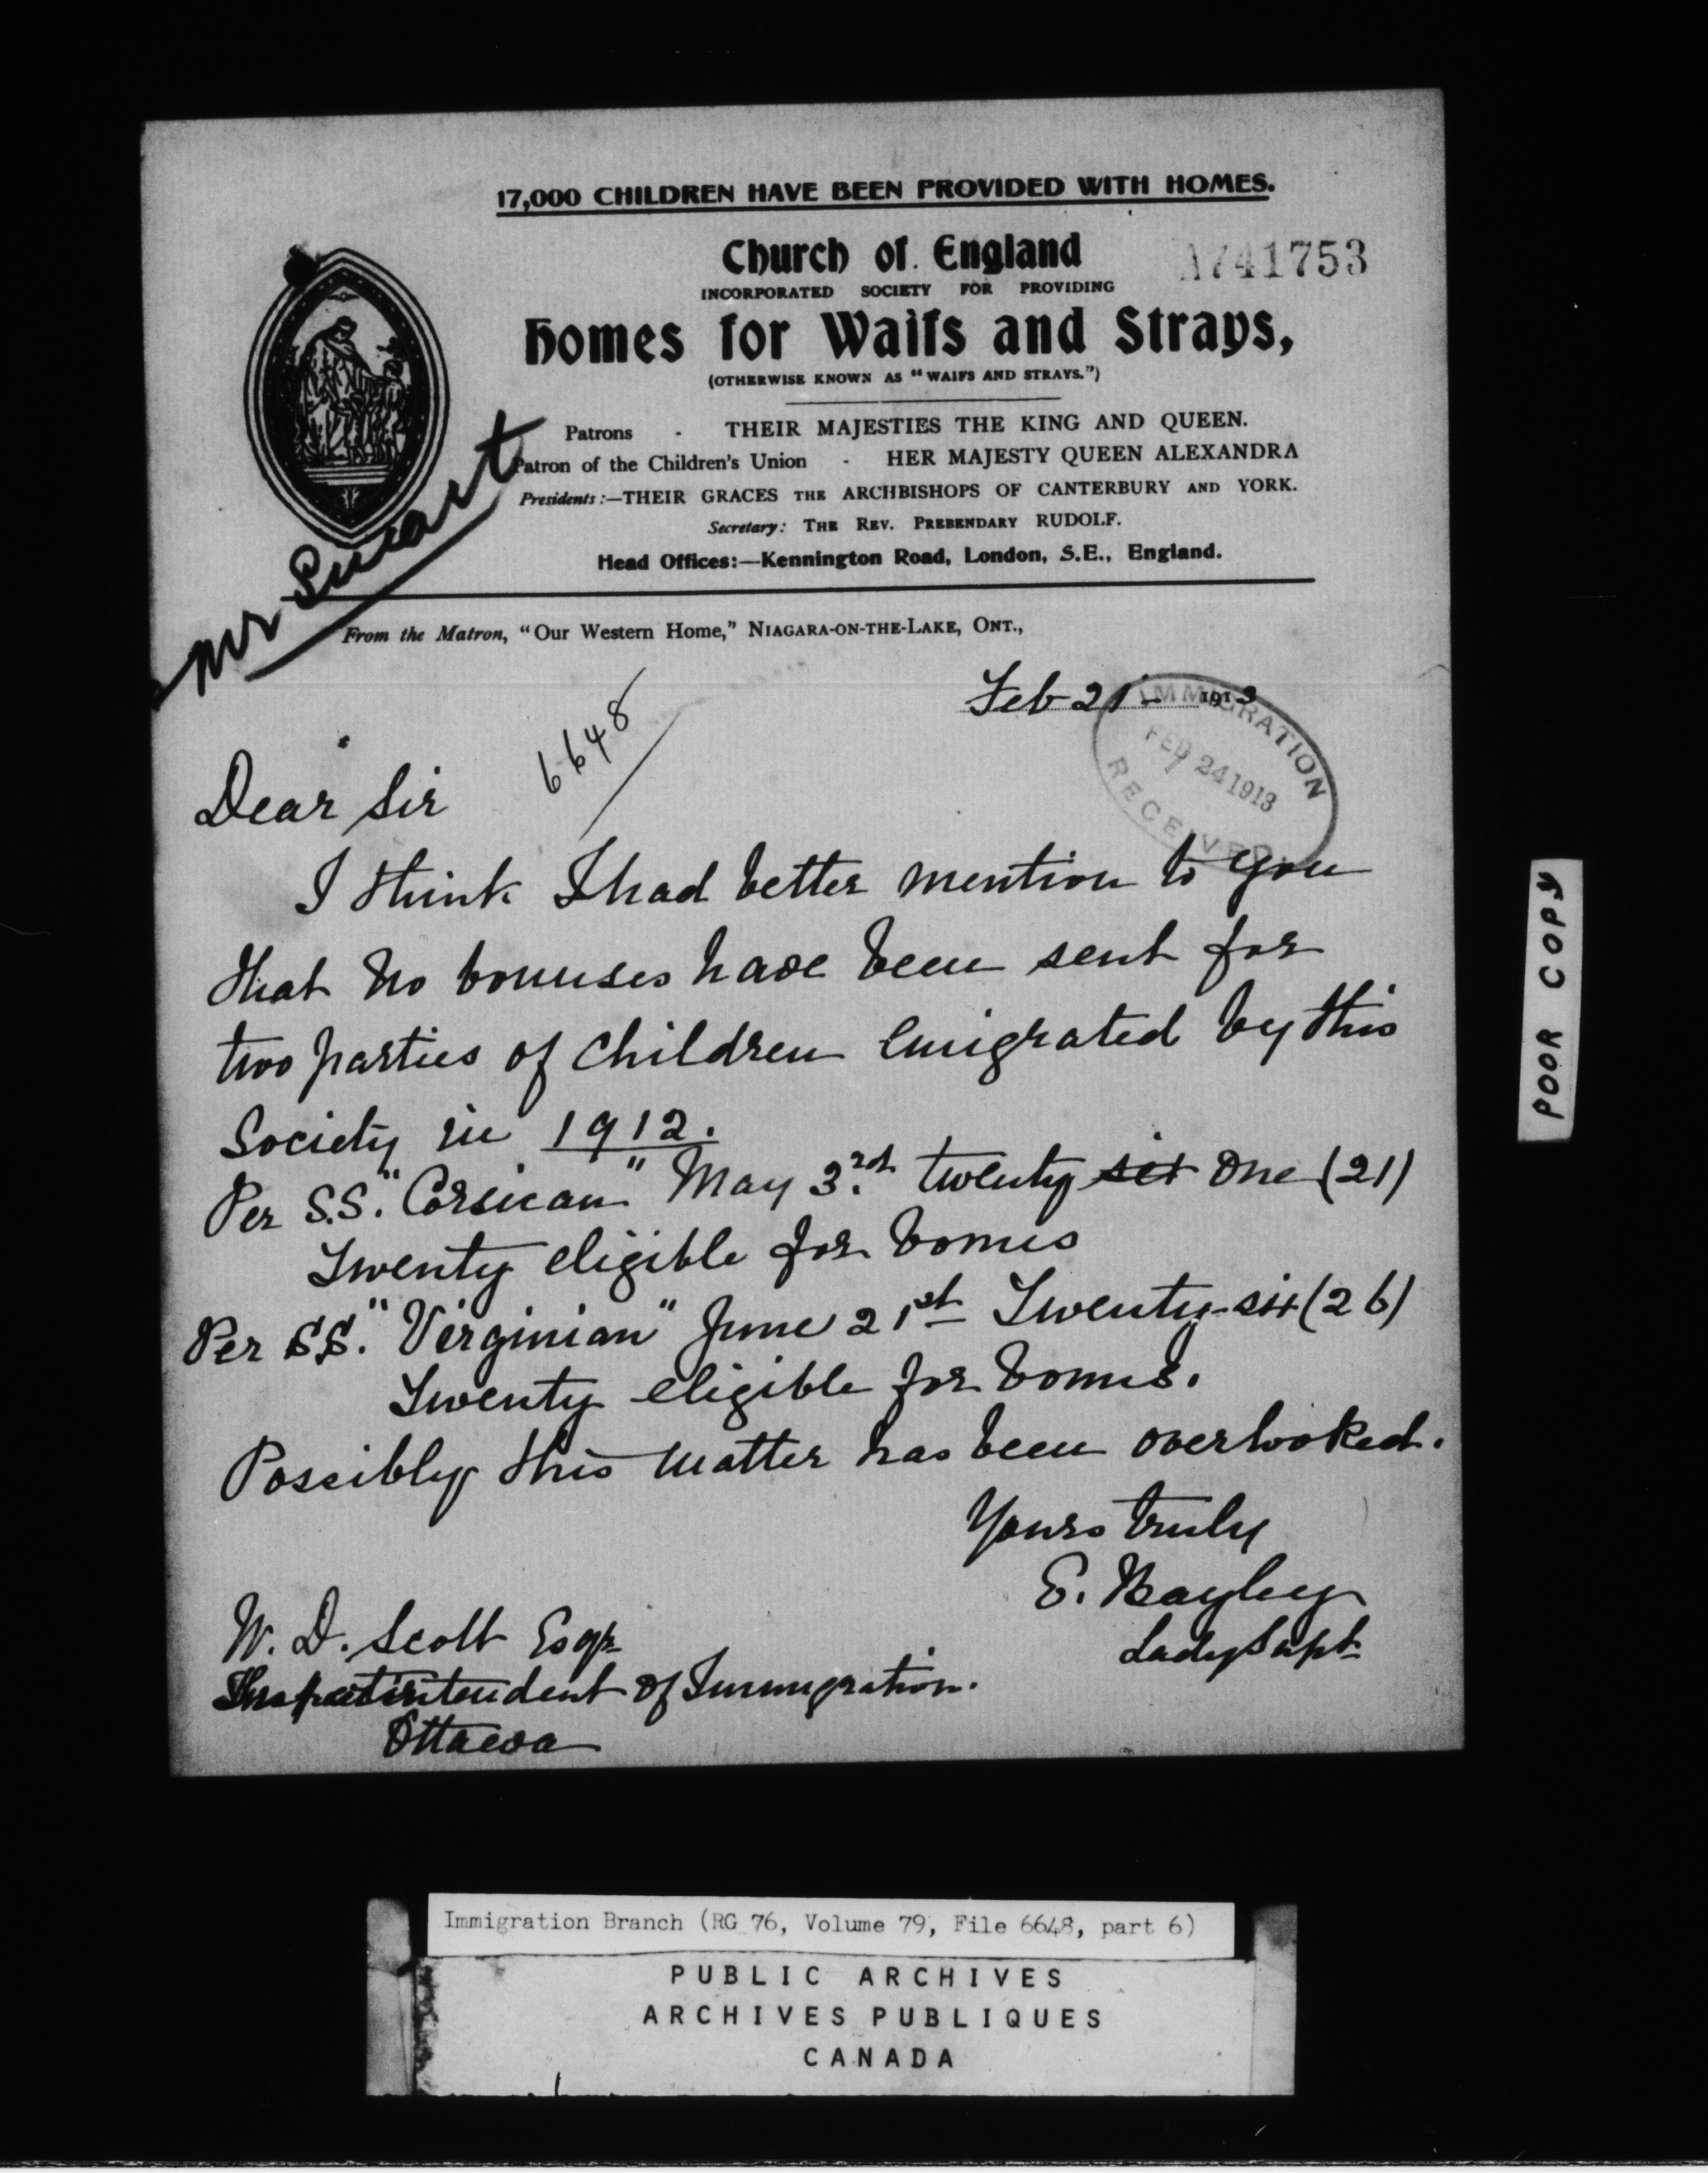 17,000 CHILDREN HAVE BEEN PROVIDED WITH HOMES.
Church of England
A741753
INCORPORATED SOCIETY FOR PROVIDING
Homes for Waifs and Strays,
(OTHERWISE KNOWN AS "WAIFS AND STRAYS.")
Patrons - THEIR MAJESTIES THE KING AND QUEEN.
Patron of the Children's Union - HER MAJESTY QUEEN ALEXANDRA
Presidents:—THEIR GRACES THE ARCHBISHOPS OF CANTERBURY AND YORK.
Secretary: THE REV. PREBENDARY RUDOLF.
Head Offices:—Kennington Road, London, S.E., England.
Mr Smart
From the Matron, "Our Western Home," NIAGARA-ON-THE-LAKE, ONT.,
Feb 21- 1913
IMMIGRATION
FEB 24 1913
RECEIVED
6648
Dear Sir
I think I had better mention to you
that no bonuses have been sent for
two parties of children emigrated by this
Society in 1912.
Per S.S. "Corsican" May 3rd. twenty six One (21)
Twenty eligible for bonus
Per SS. "Virginian" June 21st Twenty-six (26)
Twenty eligible for bonus.
Possibly this matter has been overlooked.
Yours truly
E. Bayley
Lady Supt
W. D. Scott Esqr
Superintendent of Immigration.
Ottawa
POOR COPY
Immigration Branch (RG 76, Volume 79, File 6648, part 6)
PUBLIC ARCHIVES
ARCHIVES PUBLIQUES
CANADA